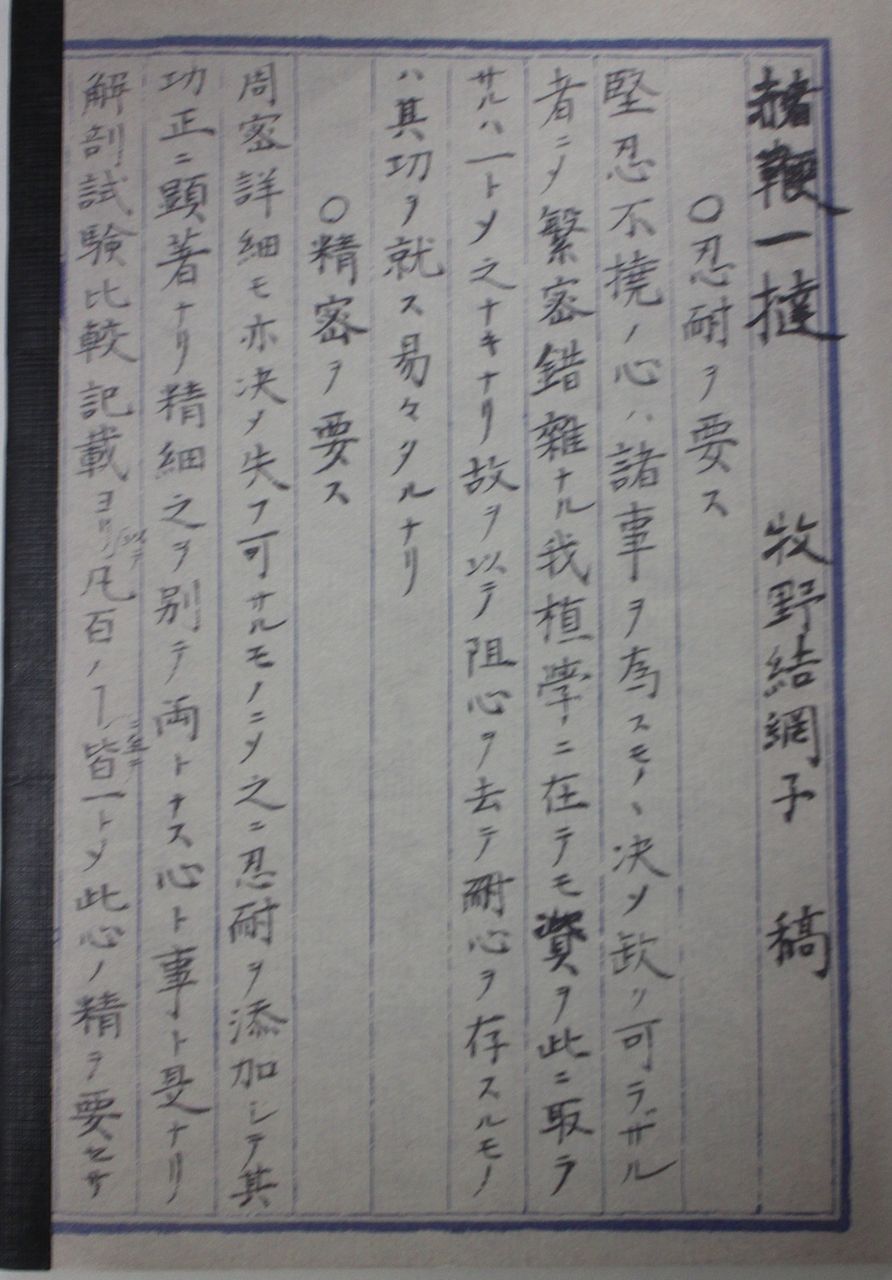 赭鞭一撻　牧野結網子　稿
〇忍耐ヲ要ス
堅忍不撓ノ心ハ諸事ヲ為スモノヽ決〆缺ク可ラザル
者ニ〆繁密錯雑ナル我植學ニ在テモ資ヲ此ニ取ラ
サルハ一ト〆之ナキナリ故ヲ以テ阻心ヲ去テ耐心ヲ存スルモノ
ハ其功ヲ就ス易々タルナリ
〇精密ヲ要ス
周密詳細モ亦决〆失フ可サルモノニ〆之ニ忍耐ヲ添加シテ其
功正ニ顕著ナリ精細之ヲ別テ両トナス心ト事ト是ナリ
解剖試験比較記載ヨリ以テ凡百ノヿニ至テ皆一ト〆此心ノ精ヲ要セサ